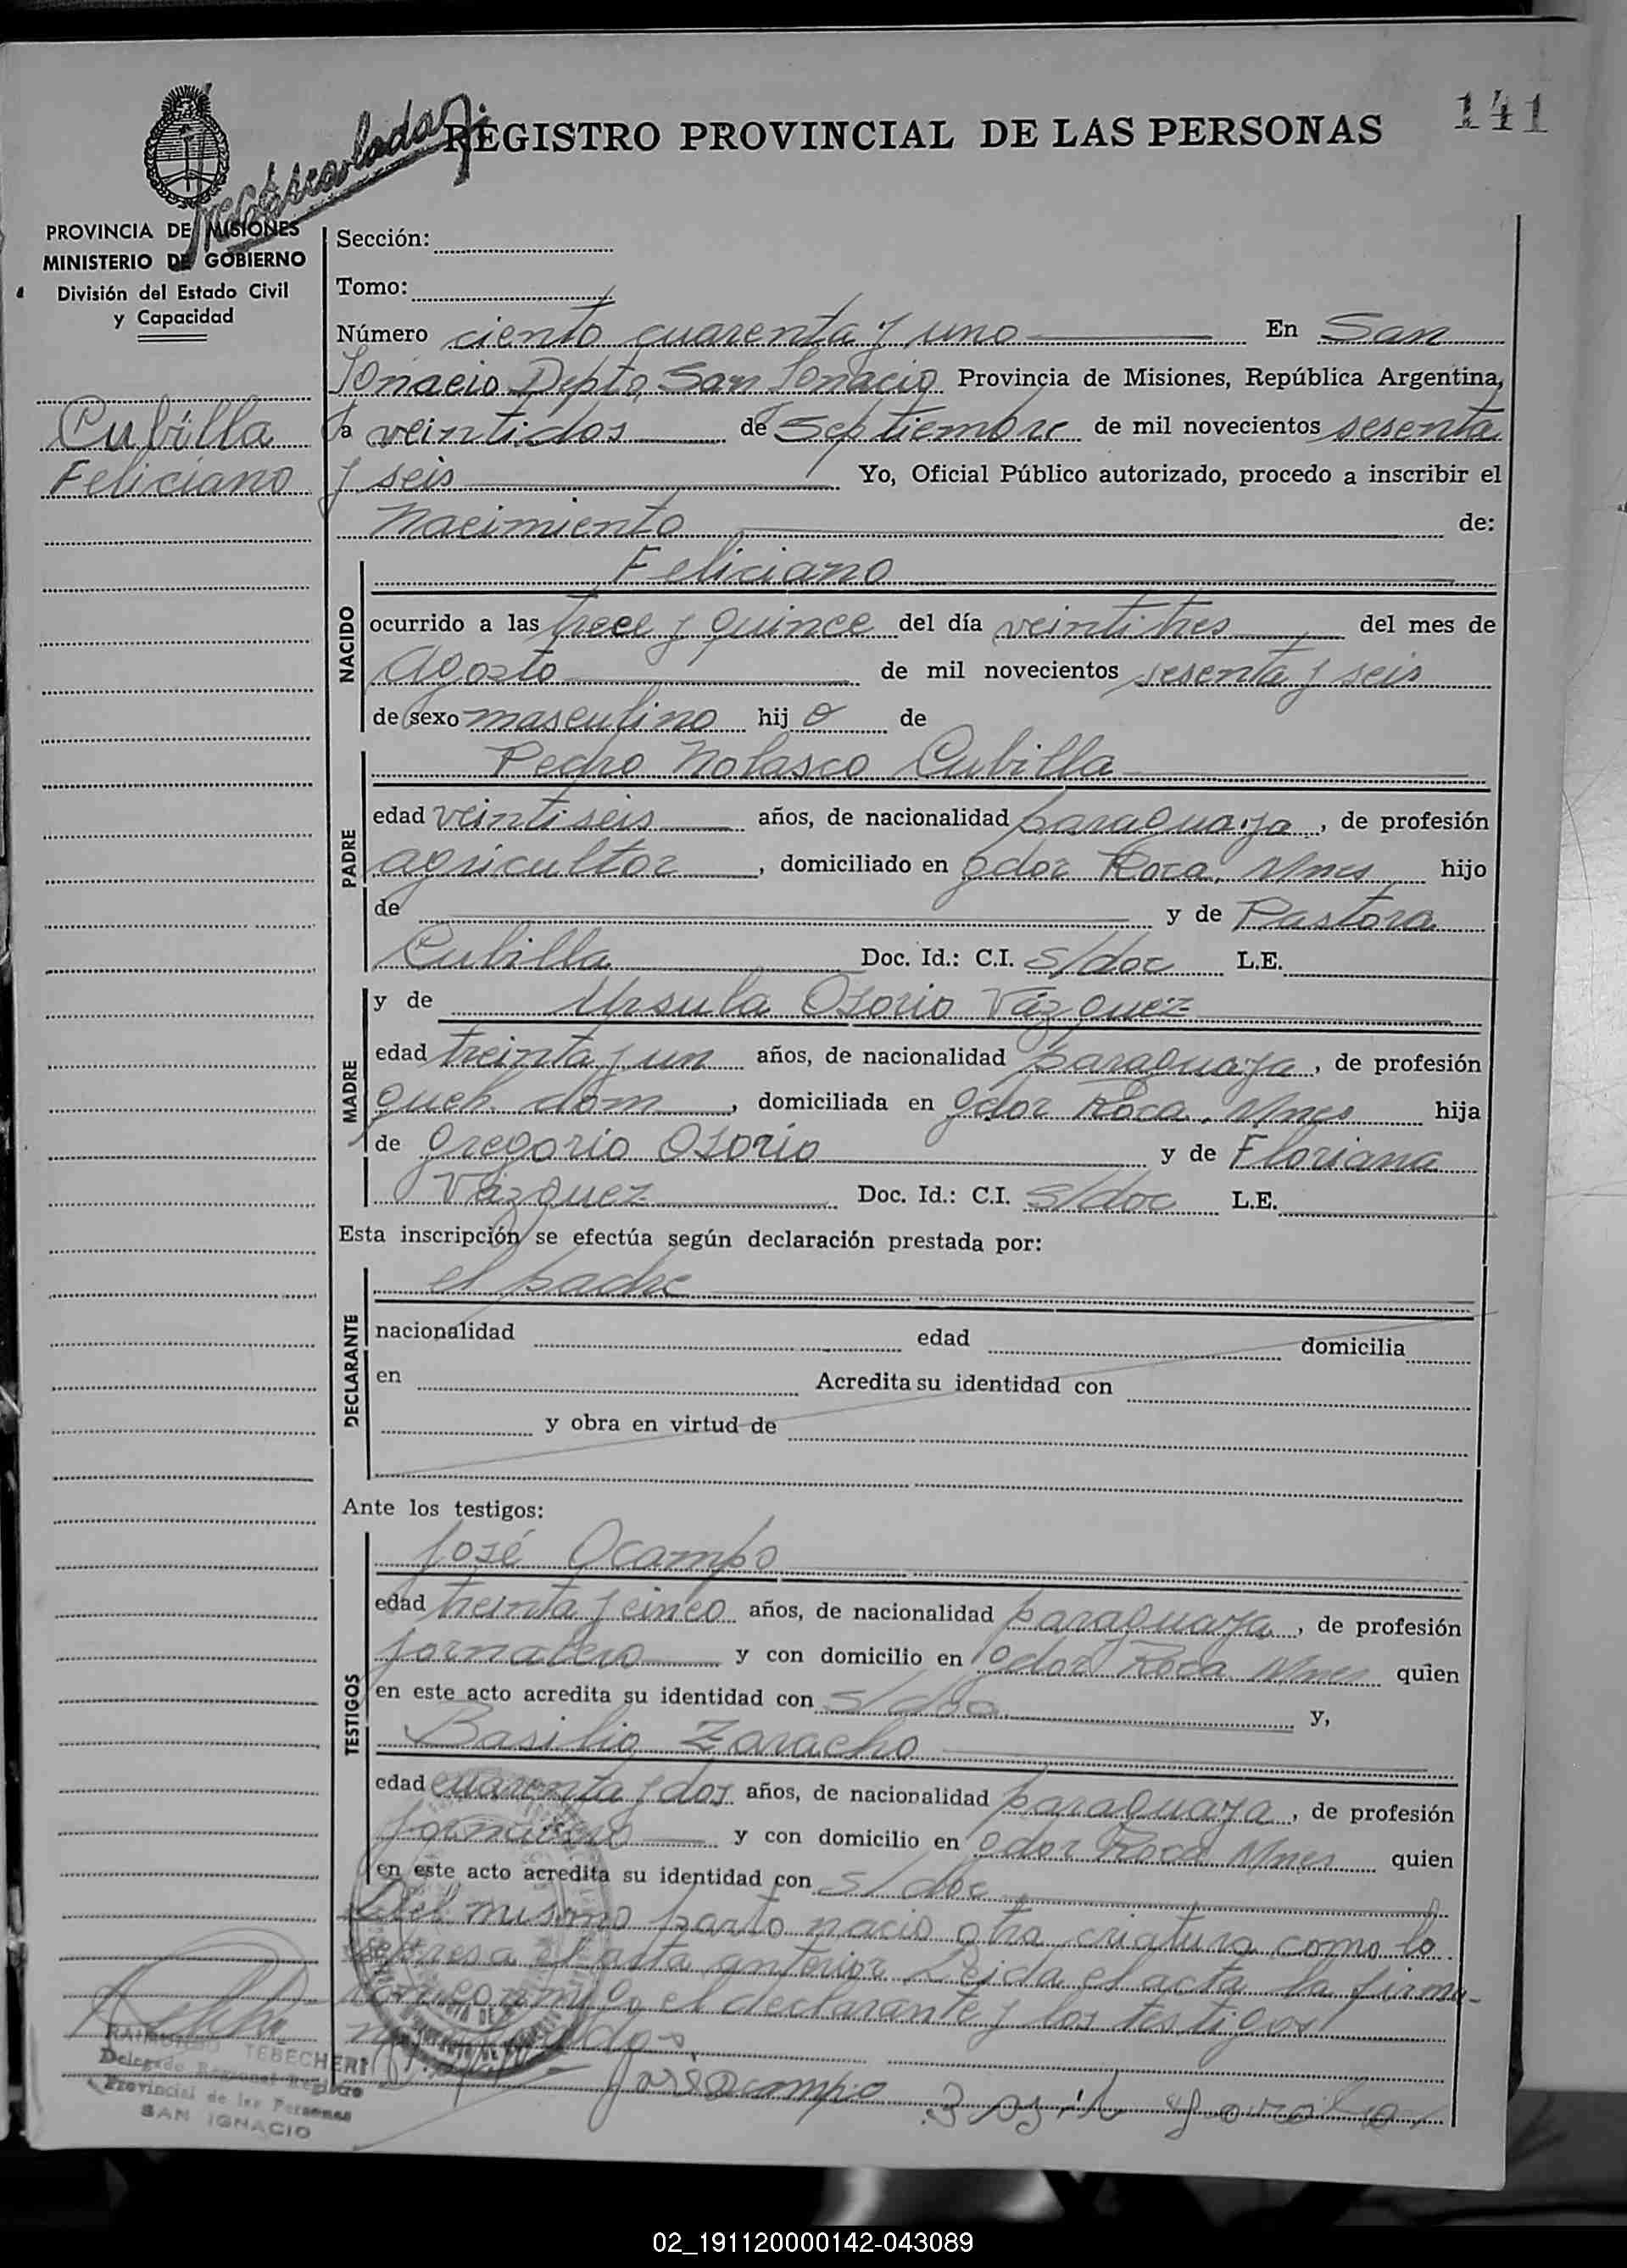 141
REGISTRO PROVINCIAL DE LAS PERSONAS
PROVINCIA DE MISIONES
MINISTERIO DE GOBIERNO
División del Estado Civil
y Capacidad
Cubilla
Feliciano
Sección:
Tomo:
Número ciento cuarenta y uno En San
Ignacio Depto, San Ignacio Provincia de Misiones, República Argentina,
a veintidos de Septiembre de mil novecientos sesenta
y seis Yo, Oficial Público autorizado, procedo a inscribir el
Nacimiento de:
NACIDO
Feliciano
ocurrido a las trece y quince del día veintitres del mes de
Agosto de mil novecientos sesenta y seis
de sexo masculino hijo de
PADRE
Pedro Nolasco Cubilla
edad veintiseis años, de nacionalidad paraguaya, de profesión
agricultor, domiciliado en gdor Roca, Mnes hijo
de y de Pastora
Cubilla Doc. Id.: C.I. s/doc L.E.
MADRE
y de Ursula Osorio Vázquez
edad treinta y un años, de nacionalidad paraguaya, de profesión
queh. dom, domiciliada en gdor Roca, Mnes hija
de Gregorio Osorio y de Floriana
Vázquez Doc. Id.: C.I. s/doc L.E.
Esta inscripción se efectúa según declaración prestada por:
DECLARANTE
el padre
nacionalidad edad domicilia
en Acredita su identidad con
y obra en virtud de
Ante los testigos:
TESTIGOS
José Ocampo
edad treinta y cinco años, de nacionalidad paraguaya, de profesión
jornalero y con domicilio en gdor Roca Mnes quien
en este acto acredita su identidad con s/doc y,
Basilio Zaracho
edad cuarenta y dos años, de nacionalidad paraguaya, de profesión
jornalero y con domicilio en gdor Roca Mnes quien
en este acto acredita su identidad con s/doc
Del mismo parto nacio otra criatura como lo
expresa el acta anterior Leida el acta la firma-
ron conmigo el declarante y los testigos
José Ocampo
RAIMUNDO TEBECHERI
Delegado Regional Registro
Provincial de las Personas
SAN IGNACIO
02_191120000142-043089